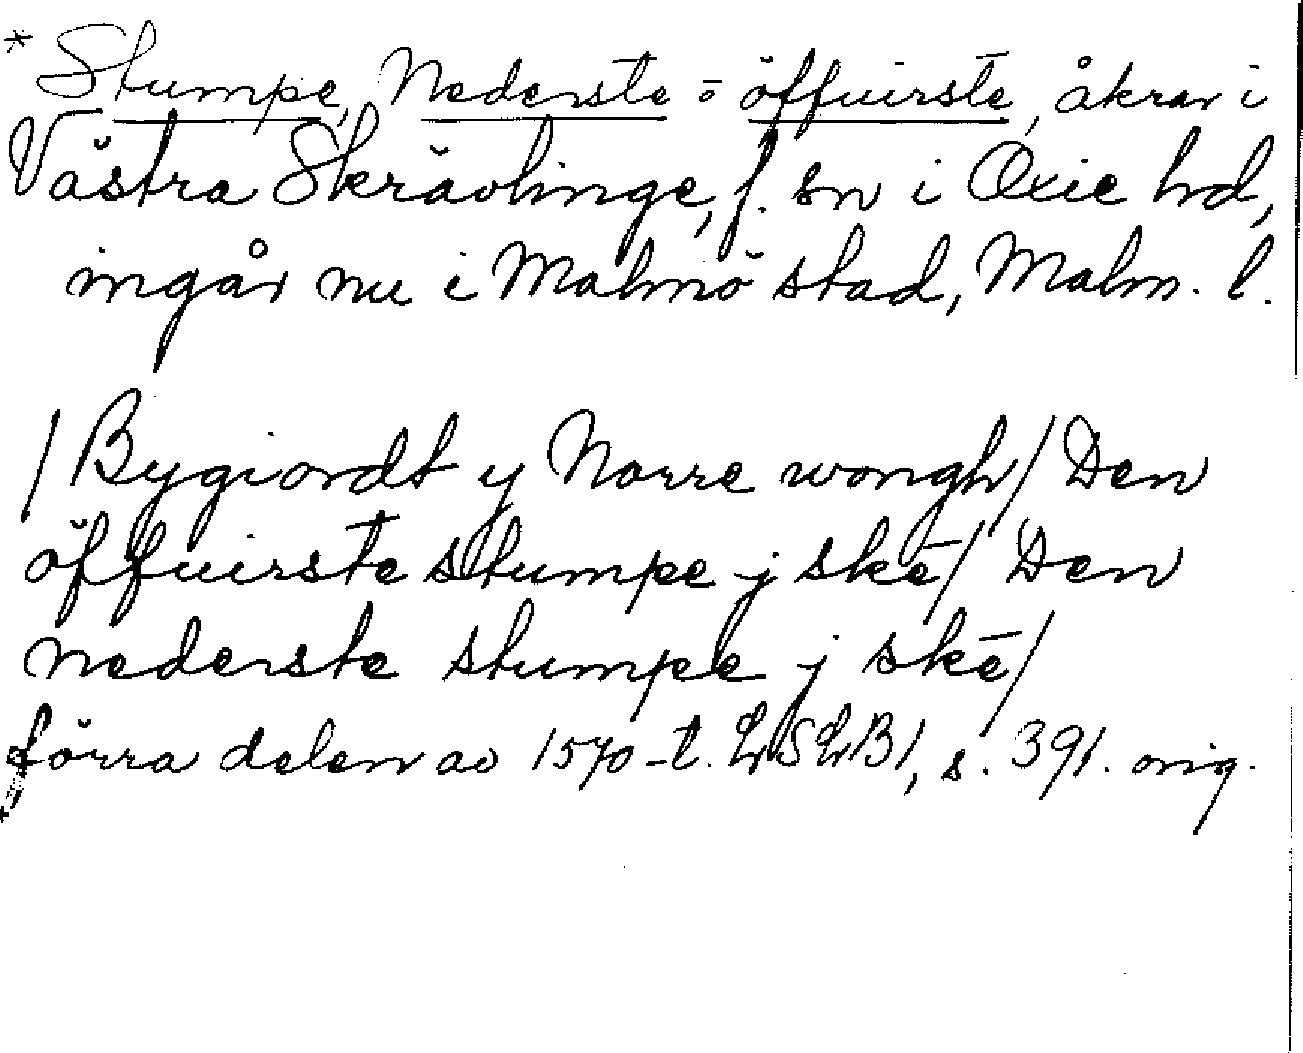 * Stumpe, Nederste = öffuirste, åkrar i
Västra Skrävlinge, f. sn i Oxie hd,
ingår nu i Malmö stad, Malm. l.
/ Bygiordt y Norre wongh / Den
öffuirste stumpe j skē / Den
nederste stumpe j skē /
förra delen av 1570-t. LSLB1, s. 391. orig.